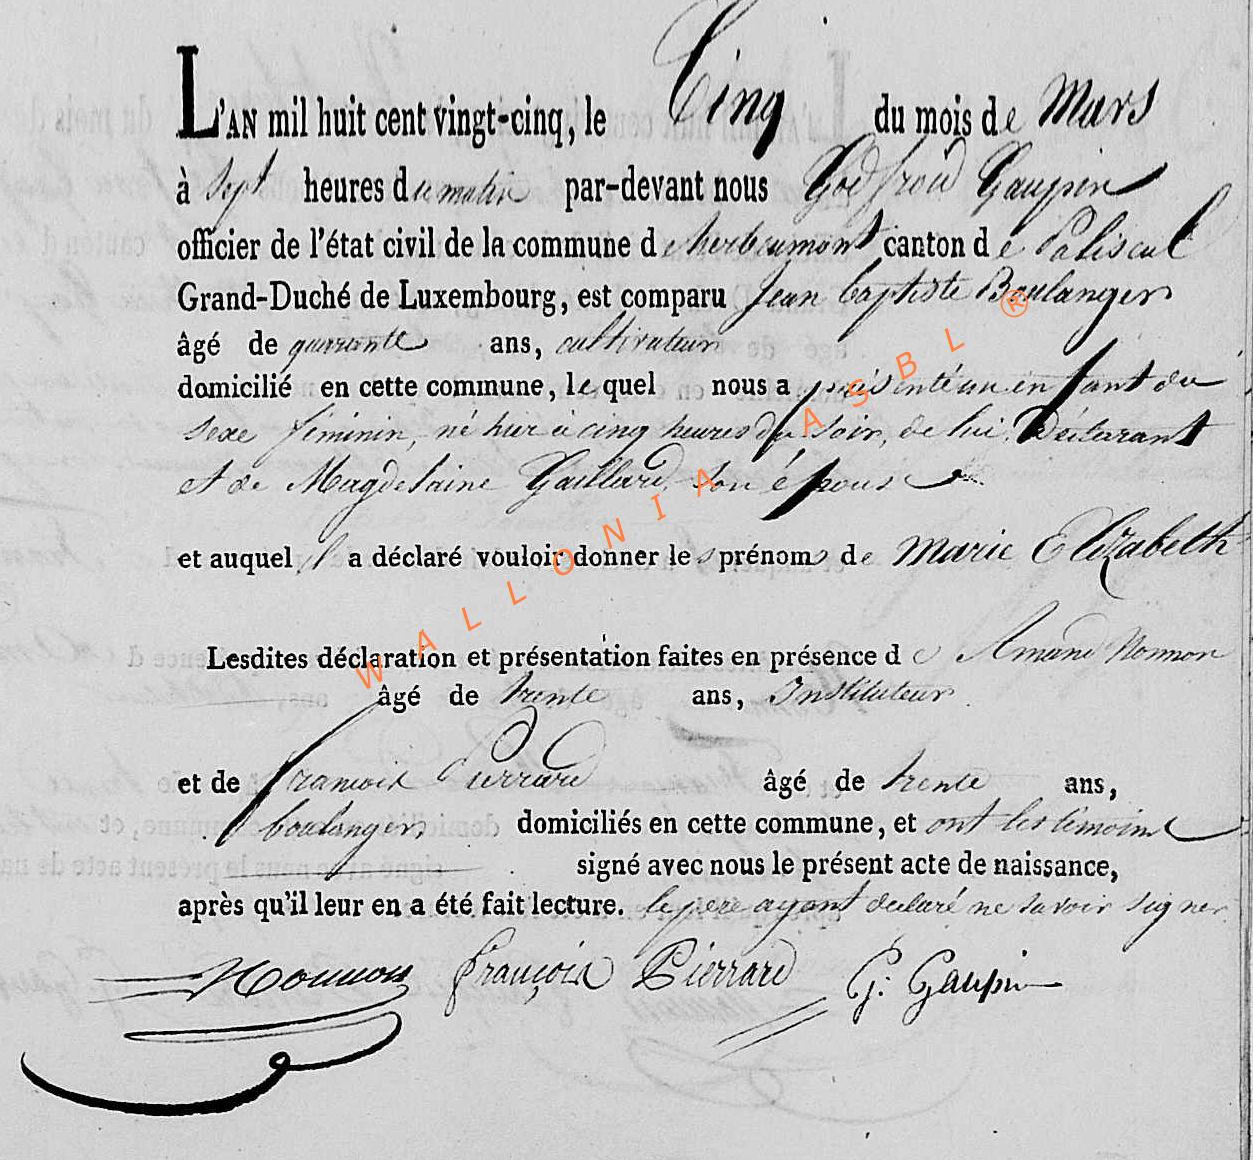 L'AN mil huit cent vingt-cinq, le Cinq du mois de Mars
à Sept heures du matin par-devant nous Godfroid Gaupin
officier de l'état civil de la commune de herbeumont canton de Paliseul
Grand-Duché de Luxembourg, est comparu Jean baptiste Boulanger
âgé de quarante ans, cultivateur
domicilié en cette commune, le quel nous a présenté un enfant du
sexe féminin, né hier à cinq heures du soir, de lui Déclarant
et de Magdelaine Gaillard, son épouse
et auquel il a déclaré vouloir donner les prénoms de Marie Elizabeth
Lesdites déclaration et présentation faites en présence de Amand Nonnon
âgé de trente ans, Instituteur
et de francois Pierrard âgé de trente ans,
boulanger, domiciliés en cette commune, et ont les temoins
signé avec nous le présent acte de naissance,
après qu'il leur en a été fait lecture. le pere ayant declaré ne savoir signer
Nonnon françois Pierrard G: Gaupin
WALLONIA ASBL ®